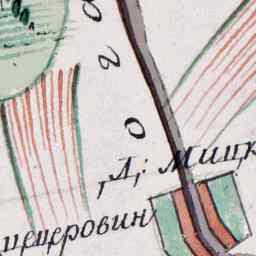 о г о
Д: Мицк
ещеровин